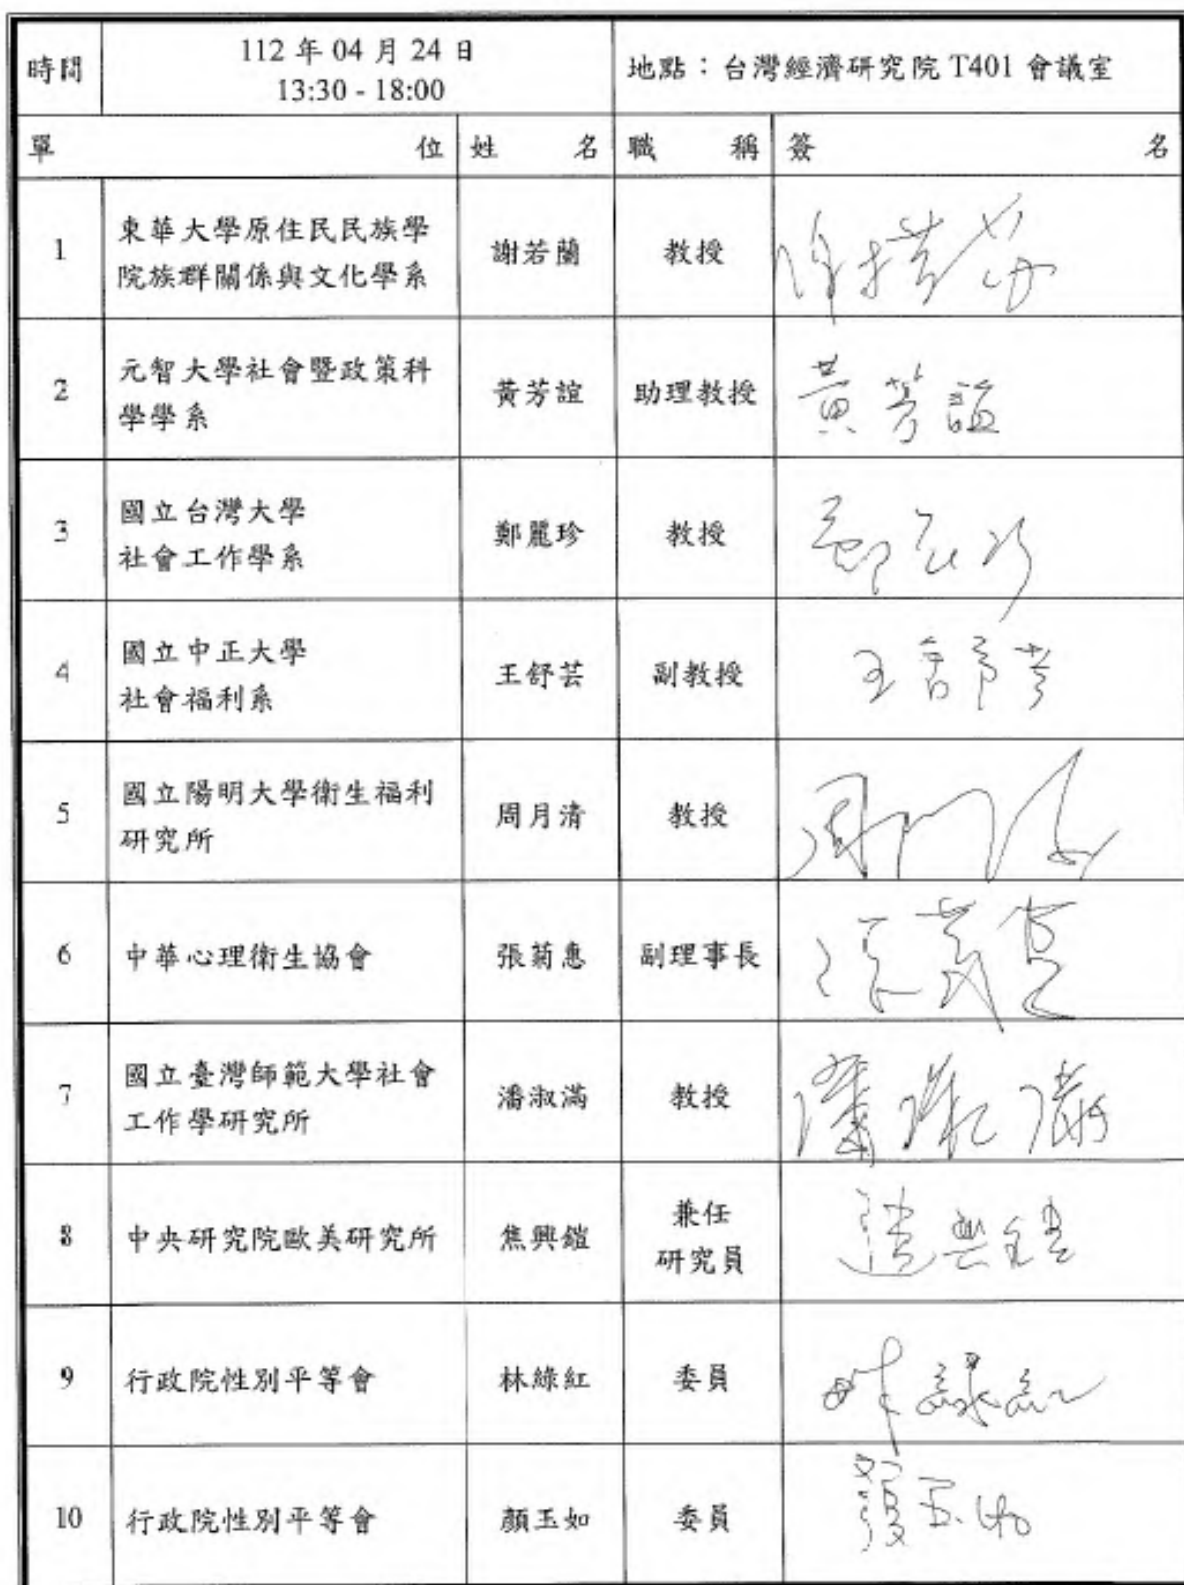 時間
112 年 04 月 24 日
13:30 - 18:00
地點：台灣經濟研究院 T401 會議室
單位 姓名 職稱 簽名
1
東華大學原住民民族學
院族群關係與文化學系
謝若蘭
教授
2
元智大學社會暨政策科
學學系
黃芳誼
助理教授
黃芳誼
3
國立台灣大學
社會工作學系
鄭麗珍
教授
4
國立中正大學
社會福利系
王舒芸
副教授
王舒芸
5
國立陽明大學衛生福利
研究所
周月清
教授
周月清
6
中華心理衛生協會
張菊惠
副理事長
7
國立臺灣師範大學社會
工作學研究所
潘淑滿
教授
潘淑滿
8
中央研究院歐美研究所
焦興鎧
兼任
研究員
焦興鎧
9
行政院性別平等會
林綠紅
委員
林綠紅
10
行政院性別平等會
顏玉如
委員
顏玉如